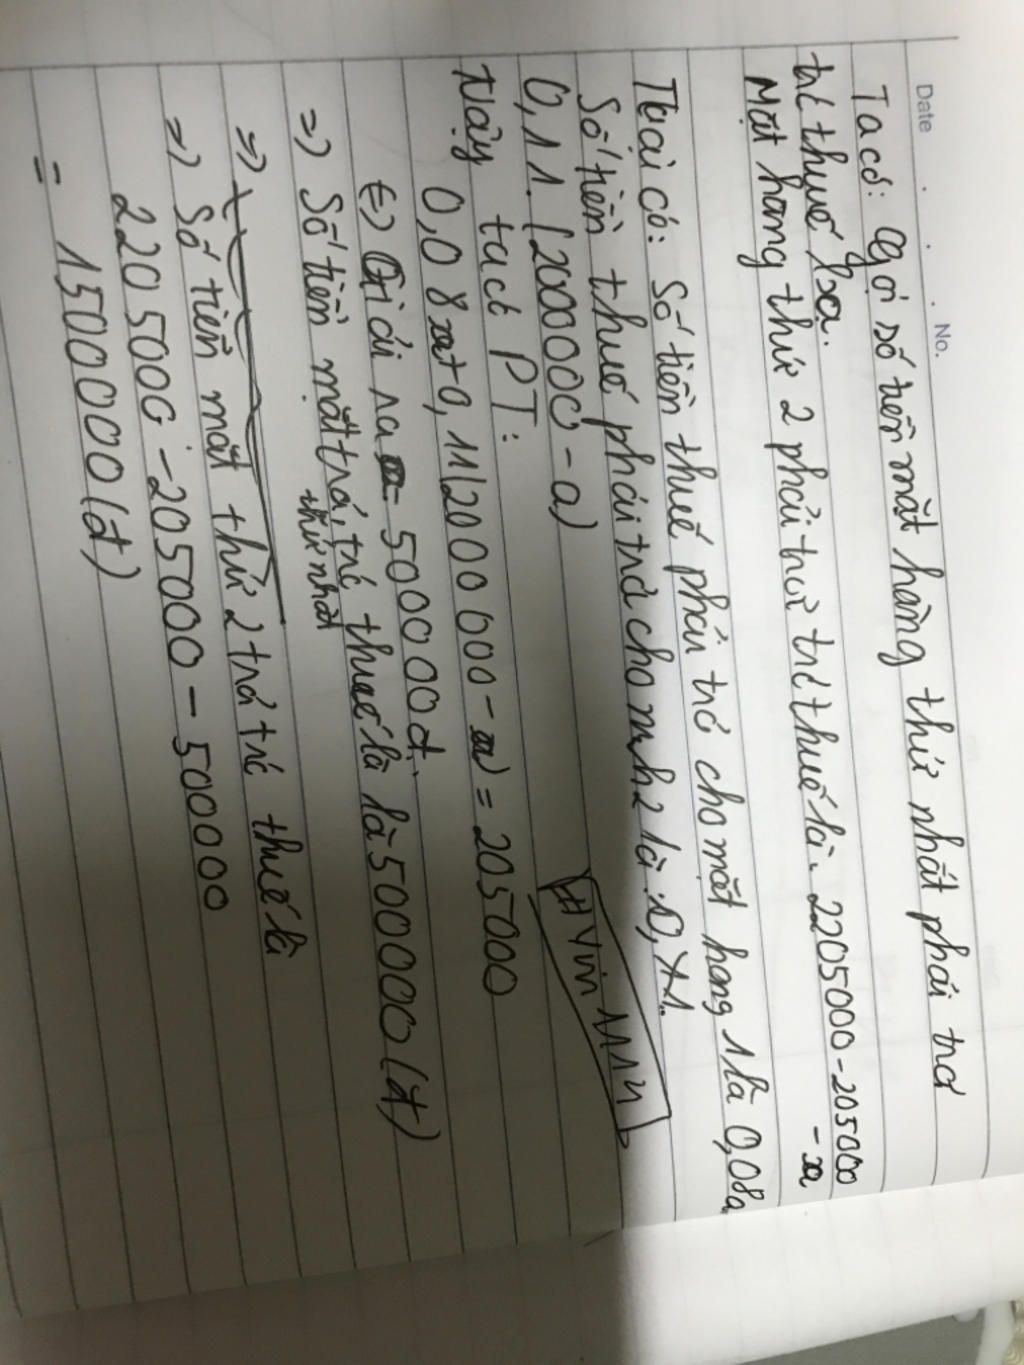 Date
No.
Ta có: Gọi số tiền mặt hàng thứ nhất phải trả
trc thuế là a.
Mặt hàng thứ 2 phải trả trc thuế là. 2205000-205000
- a
Ta lại có: Số tiền thuế phải trả cho mặt hang 1 là 0,08a
Số tiền thuế phải trả cho mh2 là:
0,11.(2000000-a)
#Yin 1114
Nậy ta ct PT:
0,08a+0,11(2000000-a)=205000
(=) Giải ra a=500000đ.
=) Số tiền mặt trả, trc thuế là là 500000(đ)
thứ nhất
=)
=) Số tiền mặt thứ 2 trả trc thuế là
2205000-205000-500000
= 1500000(đ)